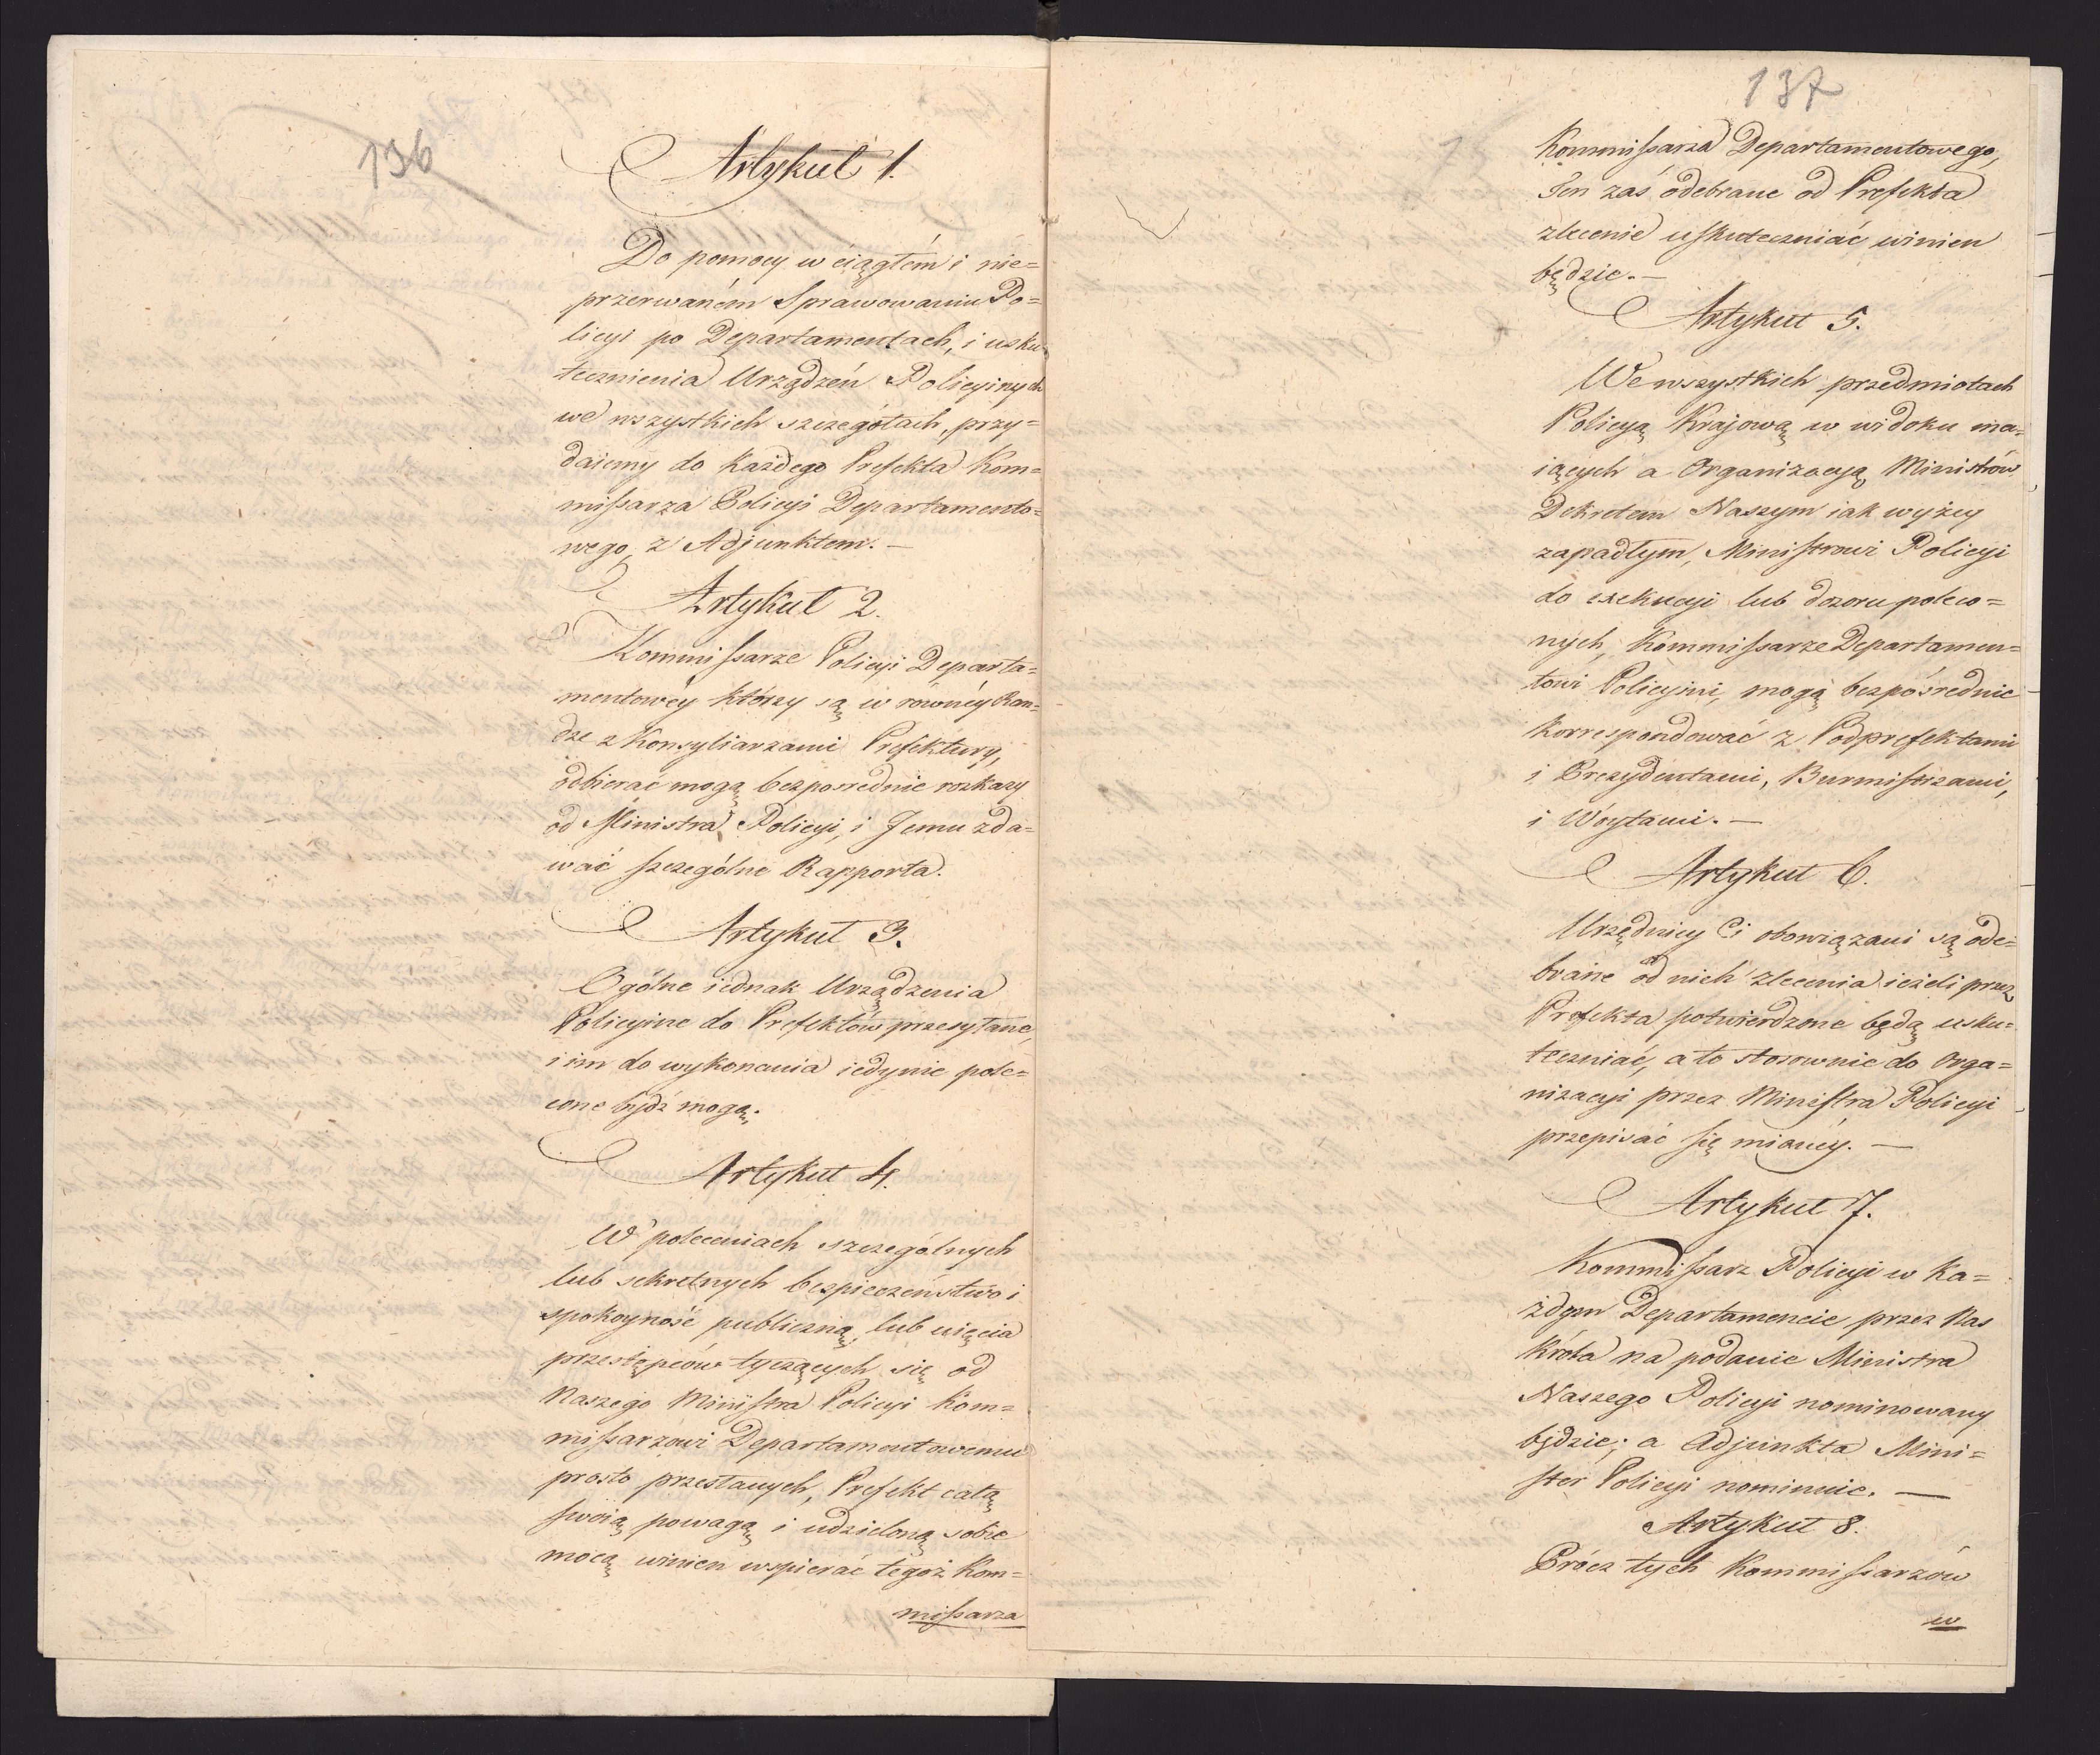 136
Artykuł 1.
Do pomocy w ciągłém i nie=
przerwaném Sprawowaniu Po=
licyi po Departamentach, i usku=
tecznienia Urządzeń Policyinych
we wszystkich szczegółach, przy=
daiemy do każdego Prefekta Kom=
missarza Policyi Departamento=
wego, z Adjunktem. —
Artykuł 2.
Kommissarze Policyi Departa=
mentowéy którzy są w równéy Ran=
dze z Konsyliarzami Prefektury,
odbierać mogą bezposrednie rozkazy
od Ministra Policyi, i Jemu zda=
wać szczególne Rapporta.
Artykuł 3.
Ogólne iednak Urządzenia
Policyine do Prefektów przesyłane,
i im do wykonania iedynie pole=
cone bydź mogą.
Artykuł 4.
W poleceniach szczególnych
lub sekretnych bezpieczeństwo i
spokoyność publiczną, lub uięcia
przestępców tyczących się od
Naszego Ministra Policyi Kom=
missarzowi Departamentowemu
prosto przesłanych, Prefekt całą
swoią powagą i udzieloną sobie
mocą winien wspierać tegoż Kom=
missarza
137
Kommissarza Departamentowego,
Ten zaś odebrane od Prefekta
zlecenie uskuteczniać winien
będzie. —
Artykuł 5.
We wszystkich przedmiotach
Policyą Krajową w widoku ma=
iących a Organizacyą Ministrów
Dekretem Naszym iak wyżey
zapadłym, Ministrowi Policyi
do exekucyi lub dozoru poleco=
nych, Kommissarze Departamen=
towi Policyini, mogą bezpośrednie
korrespondować z Podprefektami
i Prezydentami, Burmistrzami,
i Wóytami. —
Artykuł 6.
Urzędnicy Ci obowiązani są ode=
brane od nich zlecenia ieżeli przez
Prefekta potwierdzone będą usku=
teczniać, a to stosownie do Orga=
nizacyi przez Ministra Policyi
przepisać się mianéy. —
Artykuł 7.
Kommissarz Policyi w Ka=
żdym Departamencie przez Nas
Króla na podanie Ministra
Naszego Policyi nominowany
będzie; a Adjunkta Mini=
ster Policyi nominuie. —
Artykuł 8.
Prócz tych Kommissarzów
w